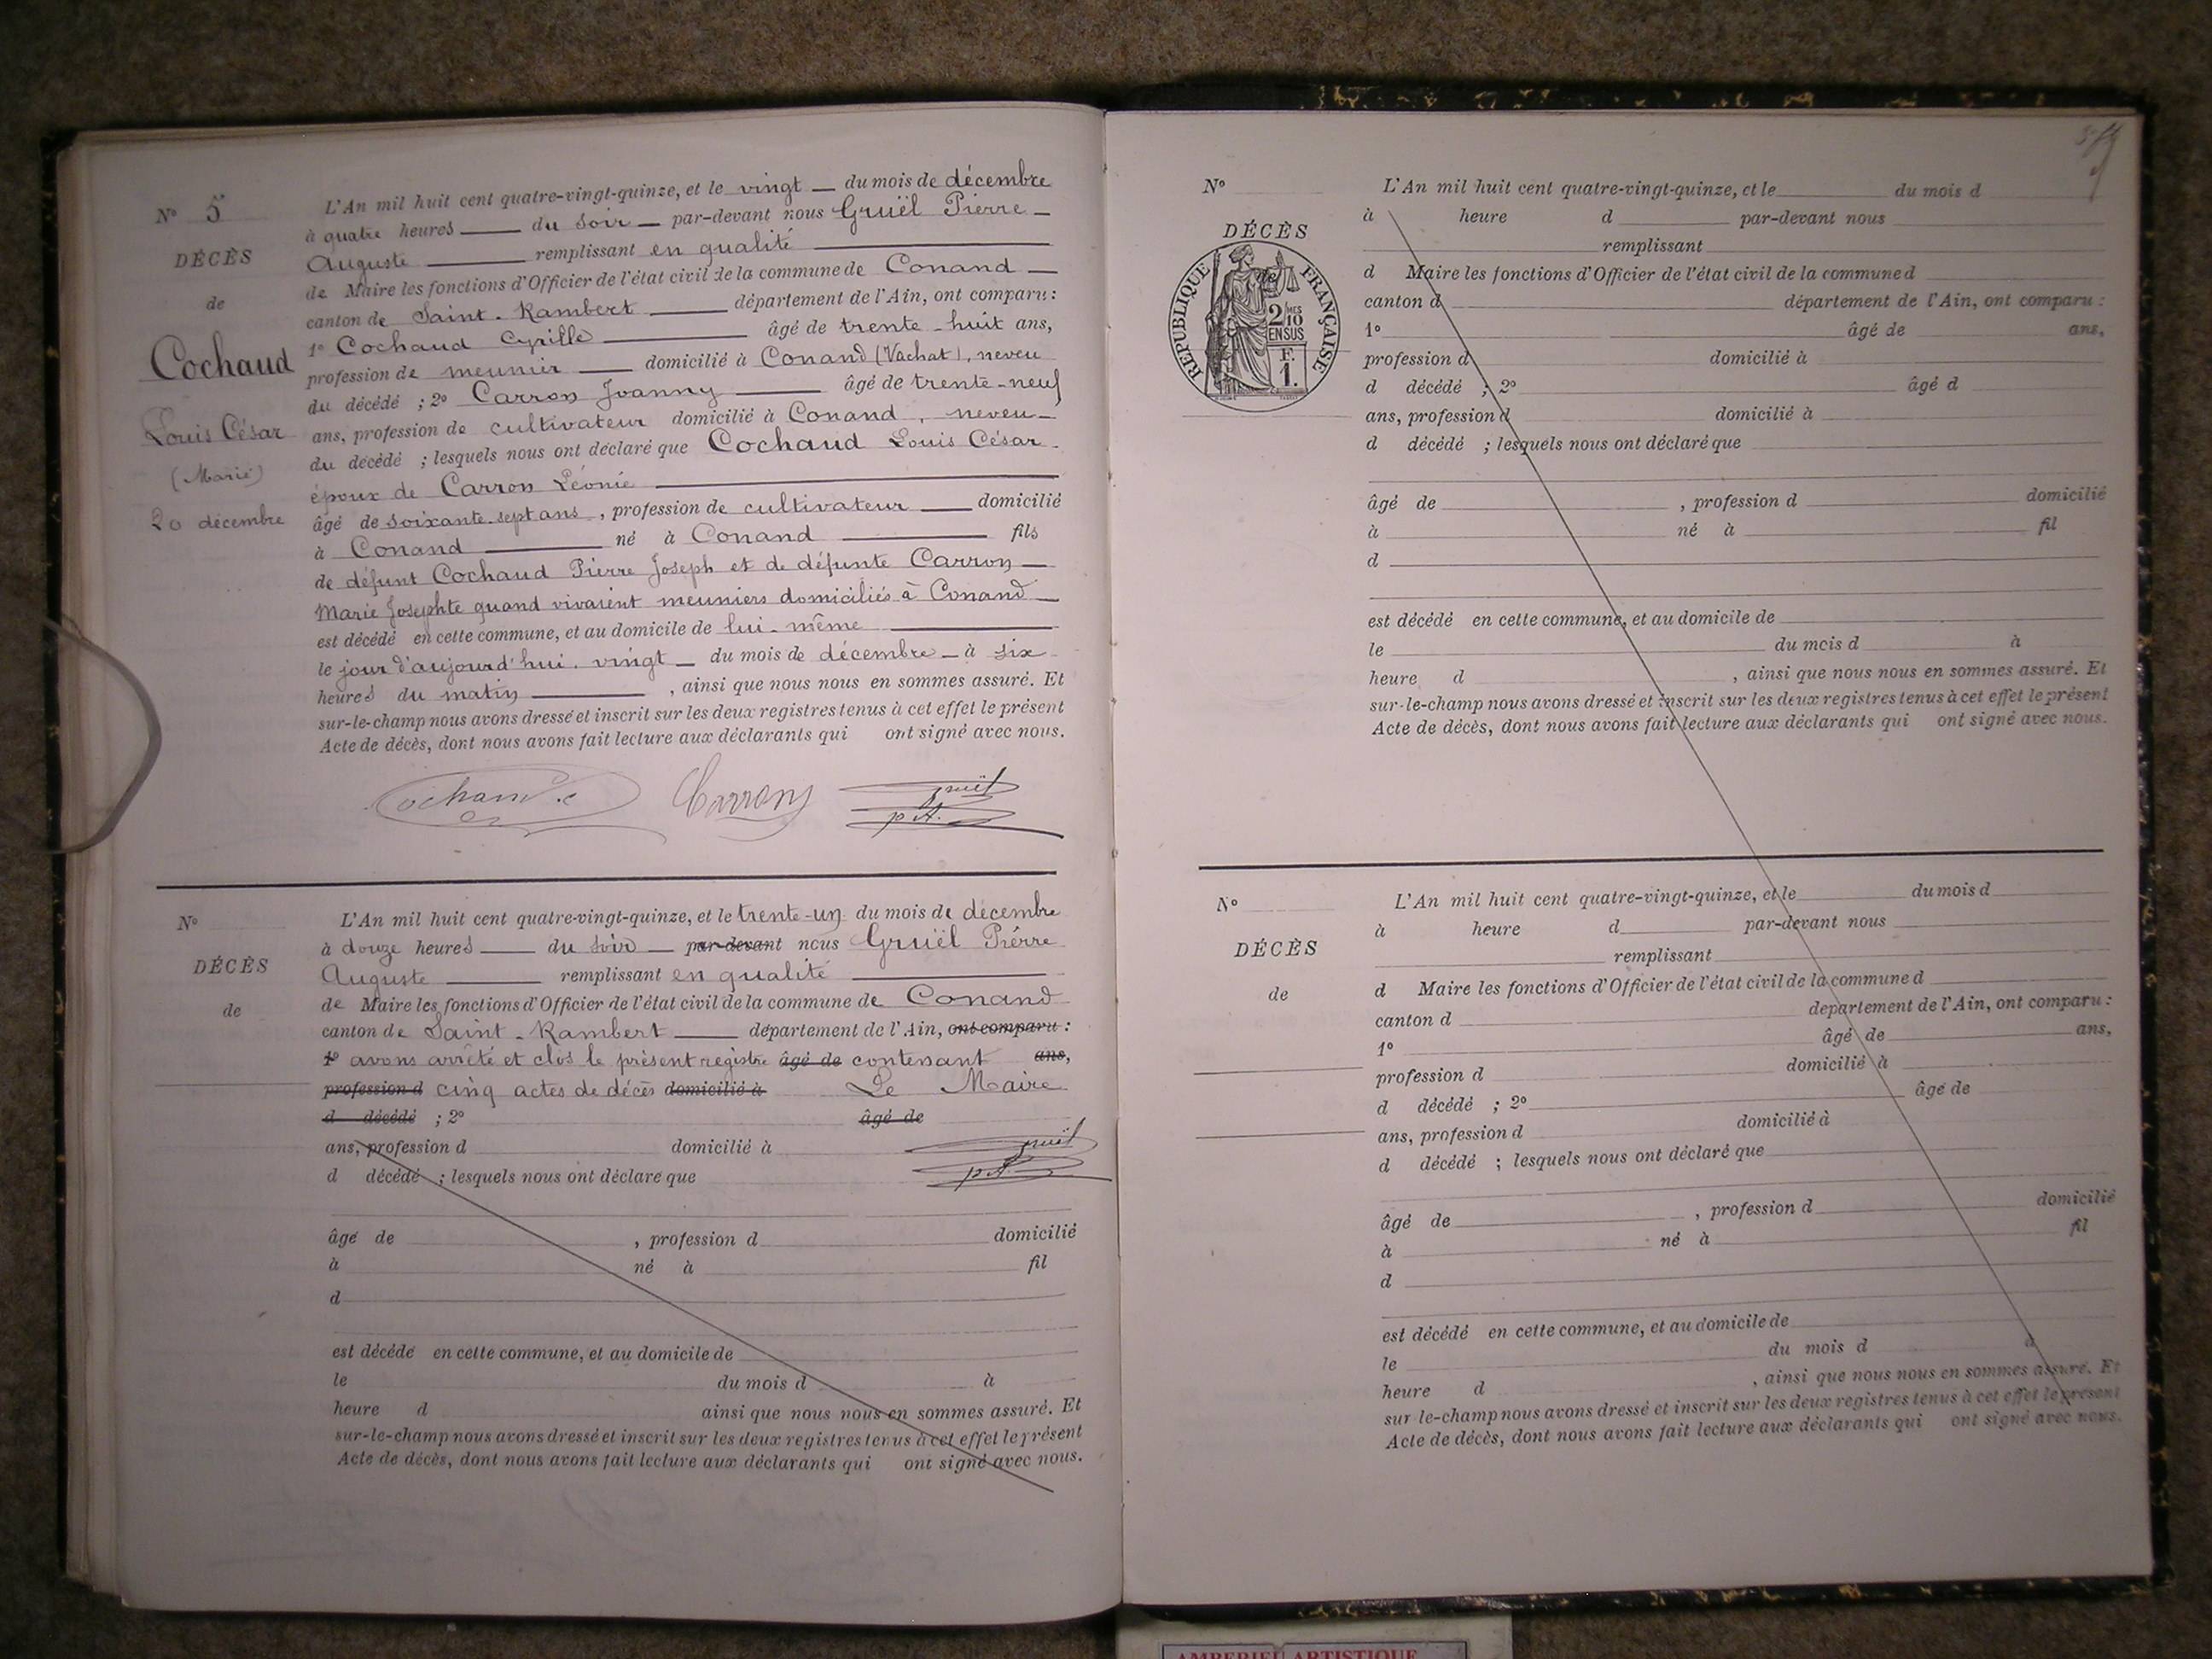 N° 5
DÉCÈS
de
Cochaud
Louis César
(Marié)
20 décembre
L'An mil huit cent quatre-vingt-quinze, et le vingt du mois de décembre
à quatre heures du soir par-devant nous Gruël Pierre
Auguste remplissant en qualité
de Maire les fonctions d'Officier de l'état civil de la commune de Conand
canton de Saint-Rambert département de l'Ain, ont comparu :
1° Cochaud Cyrille âgé de trente-huit ans,
profession de meunier domicilié à Conand (Vachat), neveu
du décédé ; 2° Carron Joanny âgé de trente-neuf
ans, profession de cultivateur domicilié à Conand, neveu
du décédé ; lesquels nous ont déclaré que Cochaud Louis César
époux de Carron Léonie
âgé de soixante-sept ans, profession de cultivateur domicilié
à Conand né à Conand fils
de défunt Cochaud Pierre Joseph et de défunte Carron
Marie Josephte quand vivaient meuniers domiciliés à Conand
est décédé en cette commune, et au domicile de lui-même
le jour d'aujourd'hui vingt du mois de décembre à six
heures du matin, ainsi que nous nous en sommes assuré. Et
sur-le-champ nous avons dressé et inscrit sur les deux registres tenus à cet effet le présent
Acte de décès, dont nous avons fait lecture aux déclarants qui ont signé avec nous.
Cochaud .c Carron Gruël
p A.
N°
DÉCÈS
de
L'An mil huit cent quatre-vingt-quinze, et le trente-un du mois de décembre
à douze heures du soir par-devant nous Gruël Pierre
Auguste remplissant en qualité
de Maire les fonctions d'Officier de l'état civil de la commune de Conand
canton de Saint-Rambert département de l'Ain, ont comparu :
1° avons arrêté et clos le présent registre âgé de contenant ans,
profession d cinq actes de décès domicilié à Le Maire
d décédé ; 2° âgé de
ans, profession d domicilié à Gruël
d décédé ; lesquels nous ont déclaré que p A.
âgé de , profession d domicilié
à né à fil
d
est décédé en cette commune, et au domicile de
le du mois d à
heure d ainsi que nous nous en sommes assuré. Et
sur-le-champ nous avons dressé et inscrit sur les deux registres tenus à cet effet le présent
Acte de décès, dont nous avons fait lecture aux déclarants qui ont signé avec nous.
N°
DÉCÈS
de
RÉPUBLIQUE FRANÇAISE
2 MES
10
EN SUS
F.
1.
L'An mil huit cent quatre-vingt-quinze, et le du mois d
à heure d par-devant nous
remplissant
d Maire les fonctions d'Officier de l'état civil de la commune d
canton d département de l'Ain, ont comparu :
1° âgé de ans,
profession d domicilié à
d décédé ; 2° âgé d
ans, profession d domicilié à
d décédé ; lesquels nous ont déclaré que
âgé de , profession d domicilié
à né à fil
d
est décédé en cette commune, et au domicile de
le du mois d à
heure d , ainsi que nous nous en sommes assuré. Et
sur-le-champ nous avons dressé et inscrit sur les deux registres tenus à cet effet le présent
Acte de décès, dont nous avons fait lecture aux déclarants qui ont signé avec nous.
N°
DÉCÈS
de
L'An mil huit cent quatre-vingt-quinze, et le du mois d
à heure d par-devant nous
remplissant
d Maire les fonctions d'Officier de l'état civil de la commune d
canton d département de l'Ain, ont comparu :
1° âgé de ans,
profession d domicilié à
d décédé ; 2° âgé de
ans, profession d domicilié à
d décédé ; lesquels nous ont déclaré que
âgé de , profession d domicilié
à né à fil
d
est décédé en cette commune, et au domicile de
le du mois d à
heure d , ainsi que nous nous en sommes assuré. Et
sur-le-champ nous avons dressé et inscrit sur les deux registres tenus à cet effet le présent
Acte de décès, dont nous avons fait lecture aux déclarants qui ont signé avec nous.
AMBERIEU ARTISTIQUE